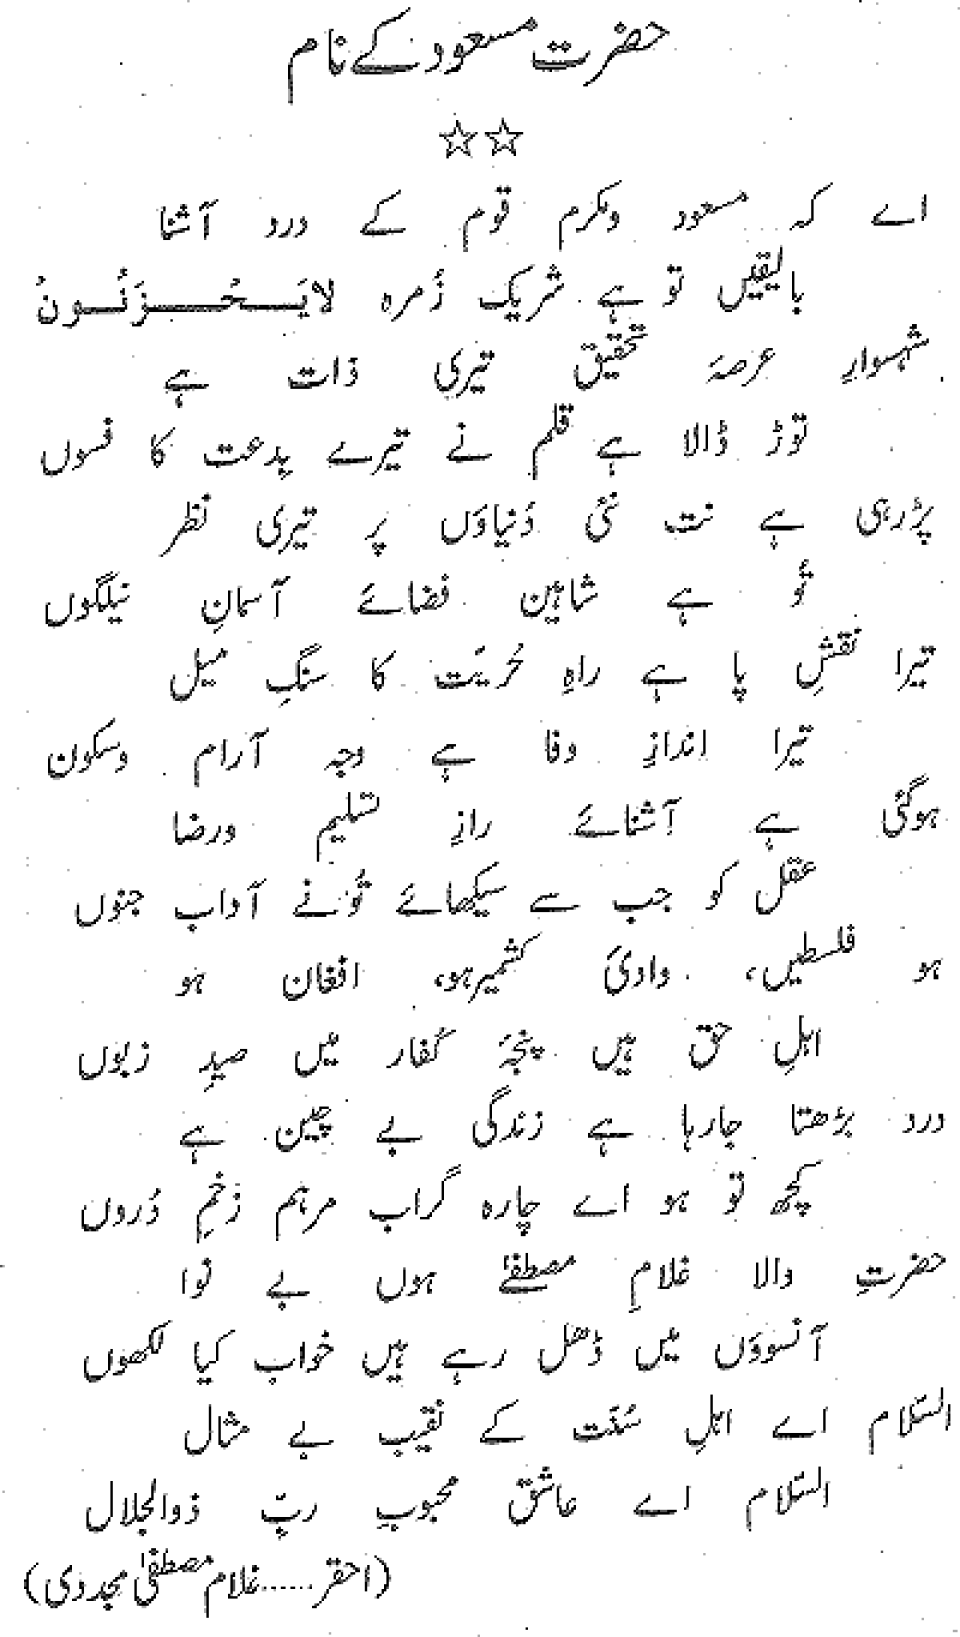 حضرت مسعود کے نام
☆☆
اے کہ مسعود ومکرم قوم کے درد آشنا
بالیقیں تو ہے شریک زُمرہ لایَحْزَنُونُ
شہسوارِ عرصۂ تحقیق تیری ذات ہے
توڑ ڈالا ہے قلم نے تیرے بِدعت کا فسوں
پڑرہی ہے نت نئی دُنیاؤں پر تیری نظر
تُو ہے شاہین فضائے آسمانِ نیلگوں
تیرا نقشِ پا ہے راہِ حُریّت کا سنگِ میل
تیرا اندازِ وفا ہے وجہ آرام وسکون
ہوگئی ہے آشنائے رازِ تسلیم ورضا
عقل کو جب سے سیکھائے تُونے آداب جنوں
ہو فلسطیں، وادیٔ کشمیر ہو، افغان ہو
اہلِ حق ہیں پنجۂ کُفار میں صیدِ زبوں
درد بڑھتا جارہا ہے زندگی بے چین ہے
کچھ تو ہو اے چارہ گراب مرہم زخمِ دُروں
حضرتِ والا غلامِ مصطفےٰ ہوں بے نوا
آنسوؤں میں ڈھل رہے ہیں خواب کیا لکھوں
السّلام اے اہلِ سُنّت کے نقیبِ بے مثال
السّلام اے عاشق محبوبِ ربِّ ذوالجلال
(احقر......غلام مصطفیٰ مجددی)